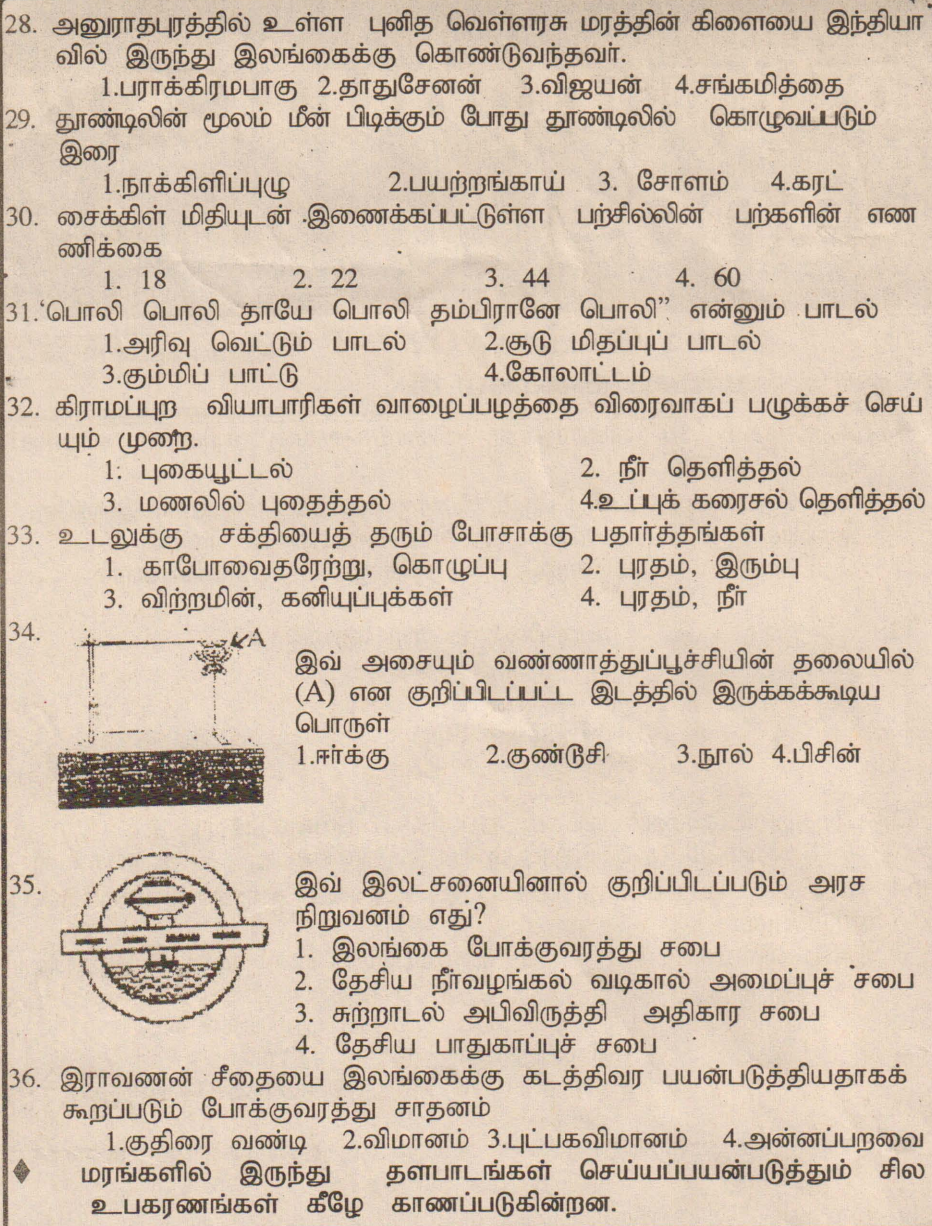 28. அனுராதபுரத்தில் உள்ள புனித வெள்ளரசு மரத்தின் கிளையை இந்தியா
வில் இருந்து இலங்கைக்கு கொண்டுவந்தவர்.
1.பராக்கிரமபாகு 2.தாதுசேனன் 3.விஜயன் 4.சங்கமித்தை
29. தூண்டிலின் மூலம் மீன் பிடிக்கும் போது தூண்டிலில் கொழுவப்படும்
இரை
1.நாக்கிளிப்புழு 2.பயற்றங்காய் 3. சோளம் 4.கரட்
30. சைக்கிள் மிதியுடன் இணைக்கப்பட்டுள்ள பற்சில்லின் பற்களின் எண
ணிக்கை
1. 18 2. 22 3. 44 4. 60
31.‘பொலி பொலி தாயே பொலி தம்பிரானே பொலி” என்னும் பாடல்
1.அரிவு வெட்டும் பாடல் 2.சூடு மிதப்புப் பாடல்
3.கும்மிப் பாட்டு 4.கோலாட்டம்
32. கிராமப்புற வியாபாரிகள் வாழைப்பழத்தை விரைவாகப் பழுக்கச் செய்
யும் முறை.
1. புகையூட்டல் 2. நீர் தெளித்தல்
3. மணலில் புதைத்தல் 4.உப்புக் கரைசல் தெளித்தல்
33. உடலுக்கு சக்தியைத் தரும் போசாக்கு பதார்த்தங்கள்
1. காபோவைதரேற்று, கொழுப்பு 2. புரதம், இரும்பு
3. விற்றமின், கனியுப்புக்கள் 4. புரதம், நீர்
34. A
இவ் அசையும் வண்ணாத்துப்பூச்சியின் தலையில்
(A) என குறிப்பிடப்பட்ட இடத்தில் இருக்கக்கூடிய
பொருள்
1.ஈர்க்கு 2.குண்டூசி 3.நூல் 4.பிசின்
35. இவ் இலட்சனையினால் குறிப்பிடப்படும் அரச
நிறுவனம் எது?
1. இலங்கை போக்குவரத்து சபை
2. தேசிய நீர்வழங்கல் வடிகால் அமைப்புச் சபை
3. சுற்றாடல் அபிவிருத்தி அதிகார சபை
4. தேசிய பாதுகாப்புச் சபை
36. இராவணன் சீதையை இலங்கைக்கு கடத்திவர பயன்படுத்தியதாகக்
கூறப்படும் போக்குவரத்து சாதனம்
1.குதிரை வண்டி 2.விமானம் 3.புட்பகவிமானம் 4.அன்னப்பறவை
♦ மரங்களில் இருந்து தளபாடங்கள் செய்யப்பயன்படுத்தும் சில
உபகரணங்கள் கீழே காணப்படுகின்றன.